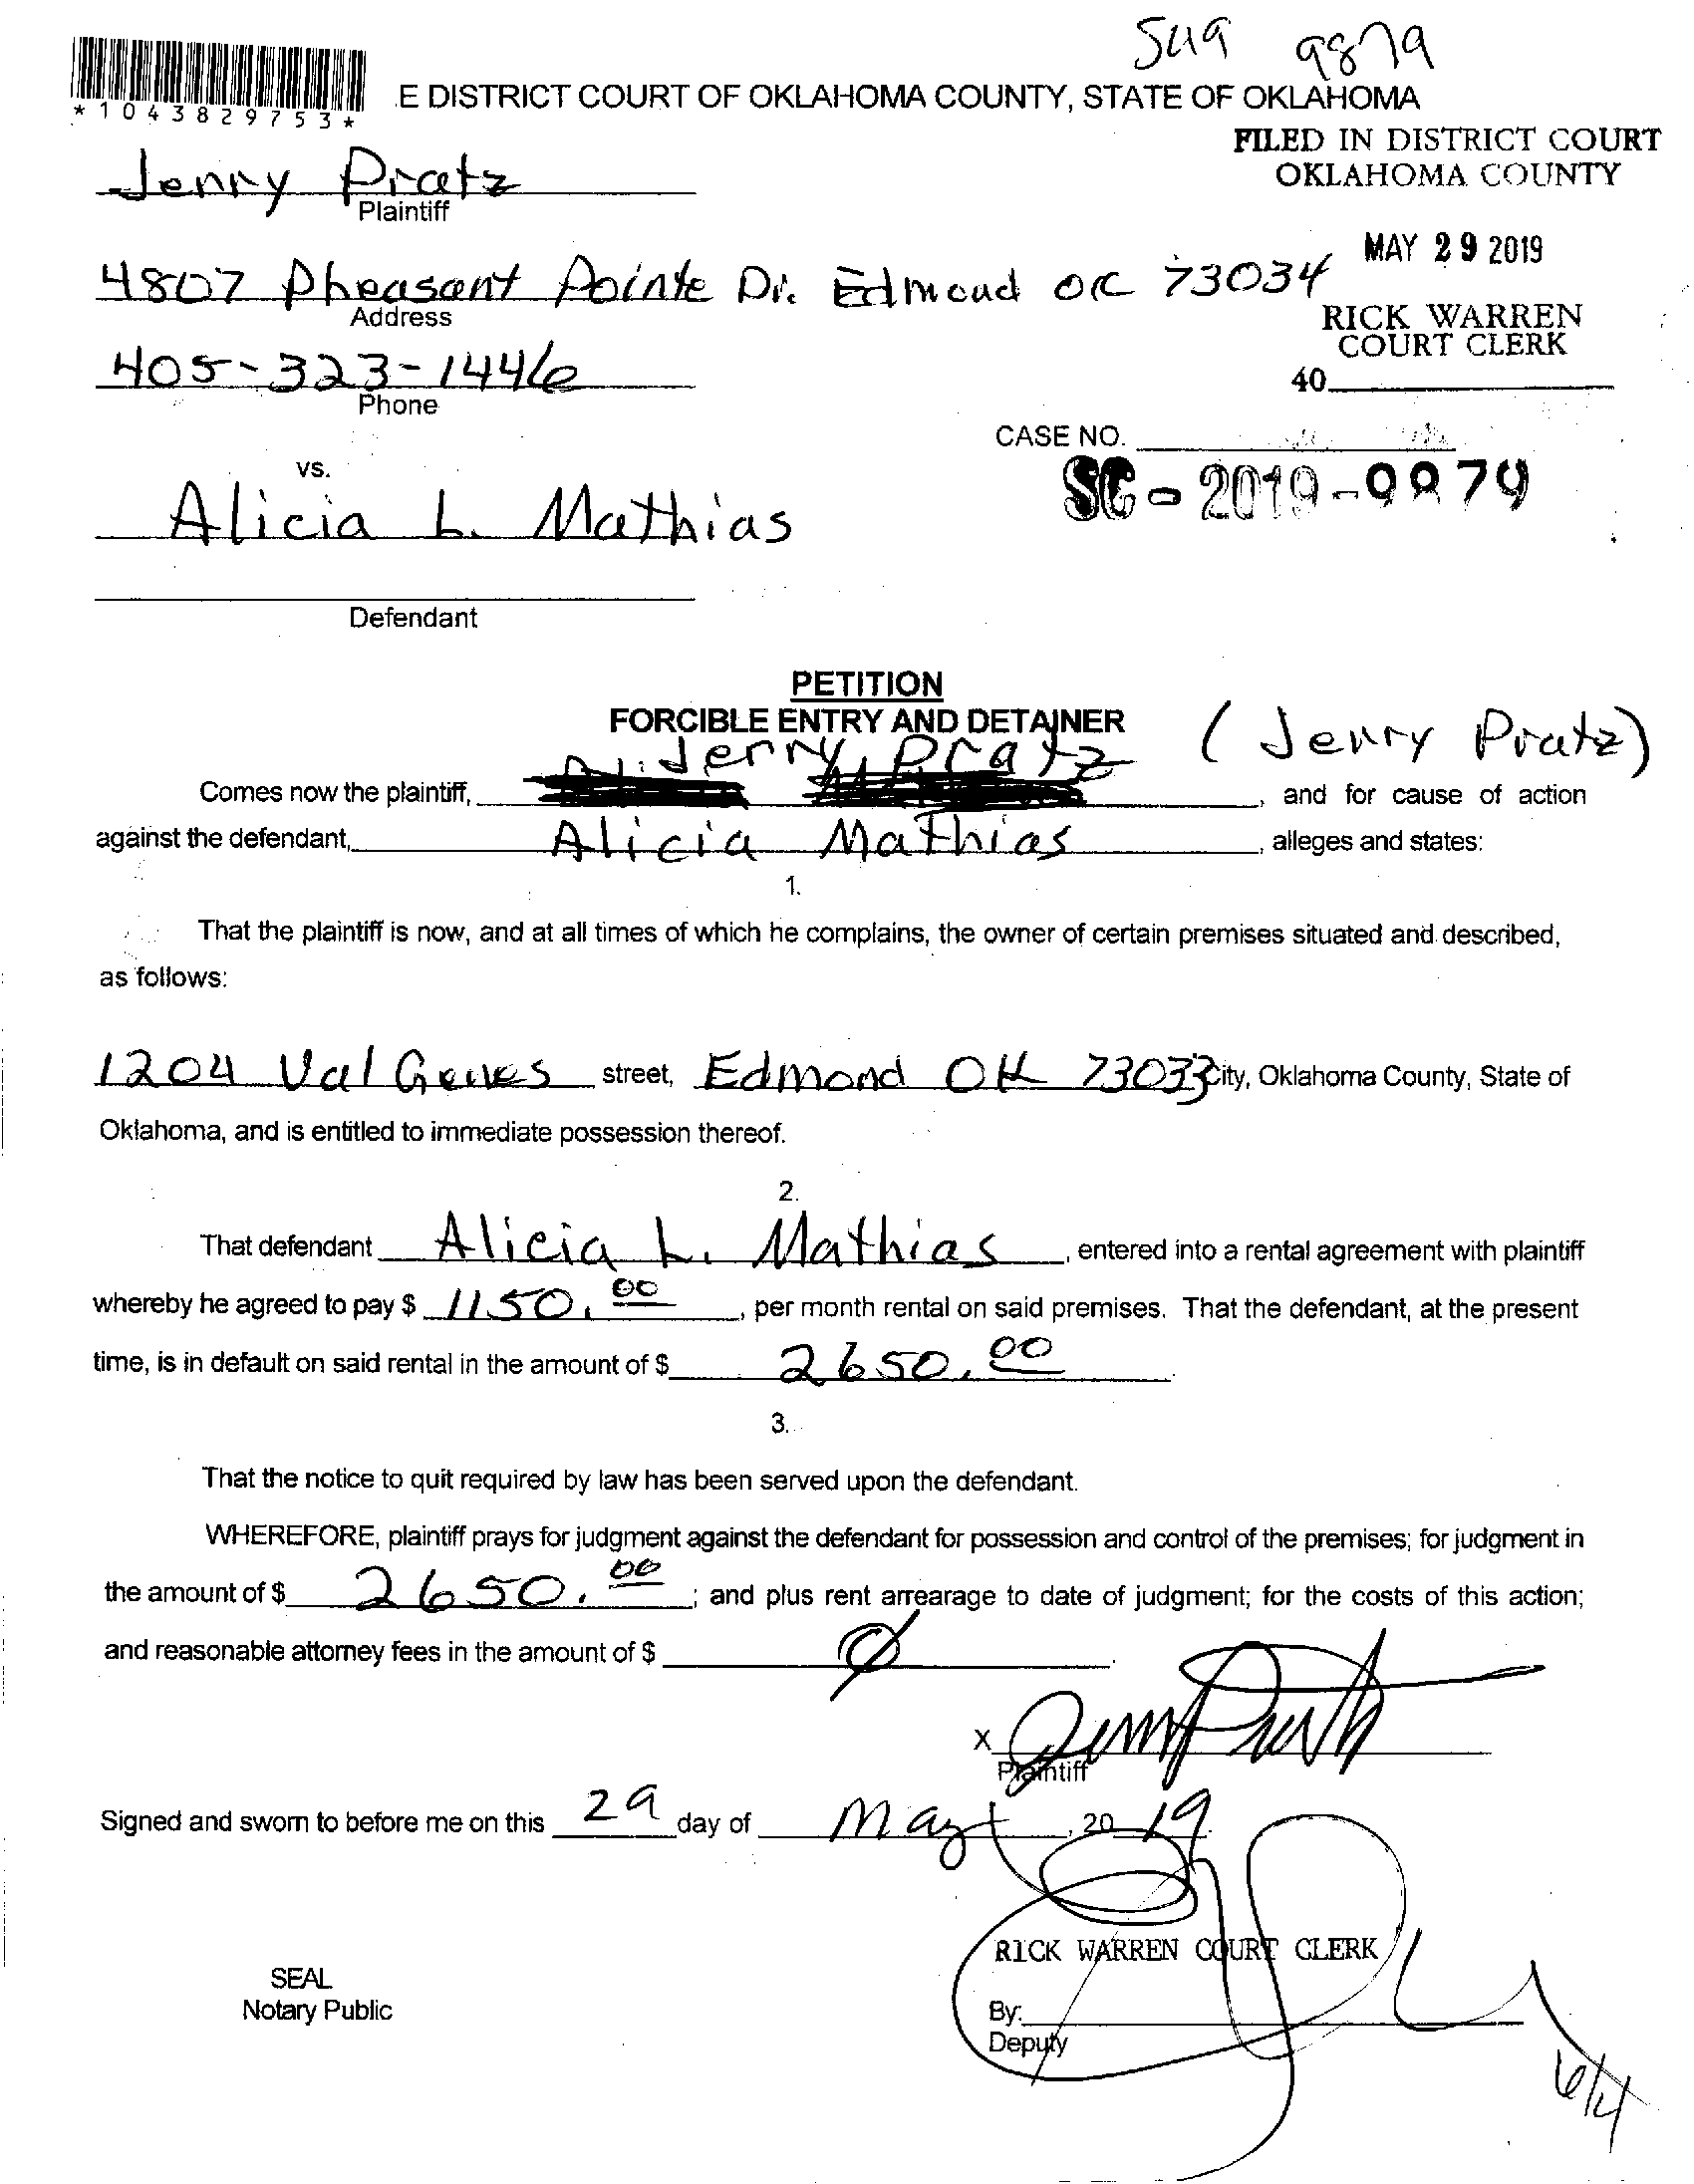 9879
*1043829753*
E DISTRICT COURT OF OKLAHOMA COUNTY, STATE OF OKLAHOMA
FILED IN DISTRICT COURT
OKLAHOMA COUNTY
Jenny Pratz
Plaintiff
MAY 29 2019
4807 Pheasant Pointe Dr. Edmond OK 73034
Address
RICK WARREN
COURT CLERK
405-323-1446
Phone
40
CASE NO.
SC-2019-9879
vs.
Alicia L. Mathias
Defendant
PETITION
FORCIBLE ENTRY AND DETAINER
(Jenny Pratz)
Comes now the plaintiff, Jenny Pratz, and for cause of action
against the defendant, Alicia Mathias, alleges and states:
1.
That the plaintiff is now, and at all times of which he complains, the owner of certain premises situated and described,
as follows:
1204 Val Genes street, Edmond OK 73033 City, Oklahoma County, State of
Oklahoma, and is entitled to immediate possession thereof.
2.
That defendant Alicia L. Mathias, entered into a rental agreement with plaintiff
whereby he agreed to pay $ 1150.00, per month rental on said premises. That the defendant, at the present
time, is in default on said rental in the amount of $ 2650.00
3.
That the notice to quit required by law has been served upon the defendant.
WHEREFORE, plaintiff prays for judgment against the defendant for possession and control of the premises; for judgment in
the amount of $ 2650.00; and plus rent arrearage to date of judgment; for the costs of this action;
and reasonable attorney fees in the amount of $ Ø.
X
Plaintiff
Signed and sworn to before me on this 29 day of May, 2019.
RICK WARREN COURT CLERK
SEAL
Notary Public
By:
Deputy
6/4